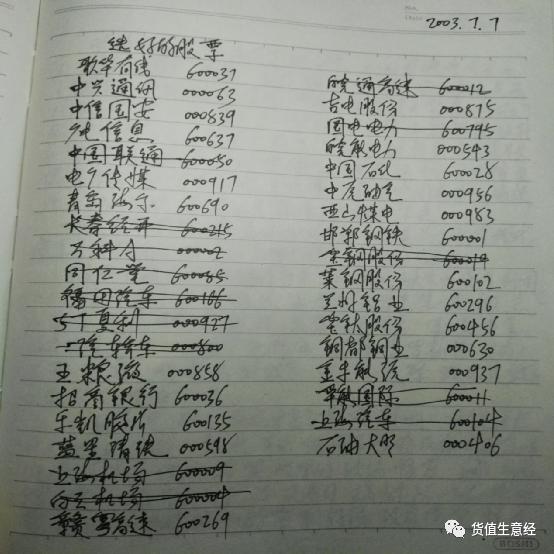 2003.7.7
好的股票
歌华有线 600037
中兴通讯 000063
中信国安 000839
广电信息 600637
中国联通 600050
电广传媒 000917
青岛海尔 600690
长春经开 600215
万科A 000002
同仁堂 600085
福田汽车 600166
ST夏利 000927
一汽轿车 000800
五粮液 000858
招商银行 600036
乐凯胶片 600135
蓝星清洗 000598
上海机场 600009
白云机场 600004
赣粤高速 600269
皖通高速 600012
吉电股份 000875
国电电力 600795
皖能电力 000543
中国石化 600028
中原油气 000956
西山煤电 000983
邯郸钢铁 600001
宝钢股份 600019
莱钢股份 600102
兰州铝业 600296
宝钛股份 600456
铜都铜业 000630
金牛能源 000937
华能国际 600011
上海汽车 600104
石油大明 000406
货值生意经